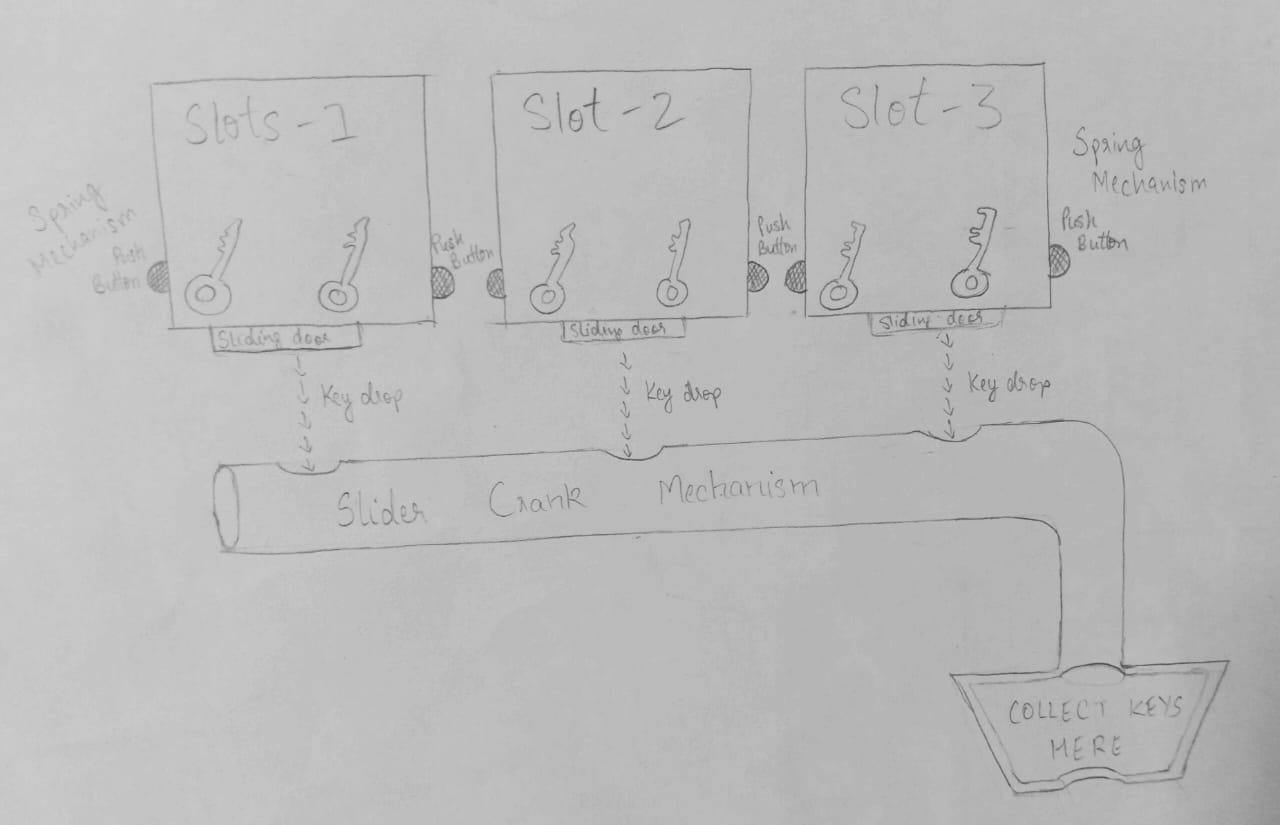 Slots-1
Slot-2
Slot-3
Spring
Mechanism
Push
Button
Push
Button
Push
Button
Spring
Mechanism
Push
Button
Sliding door
Sliding door
Sliding door
Key drop
Key drop
Key drop
Slider Crank Mechanism
COLLECT KEYS
HERE